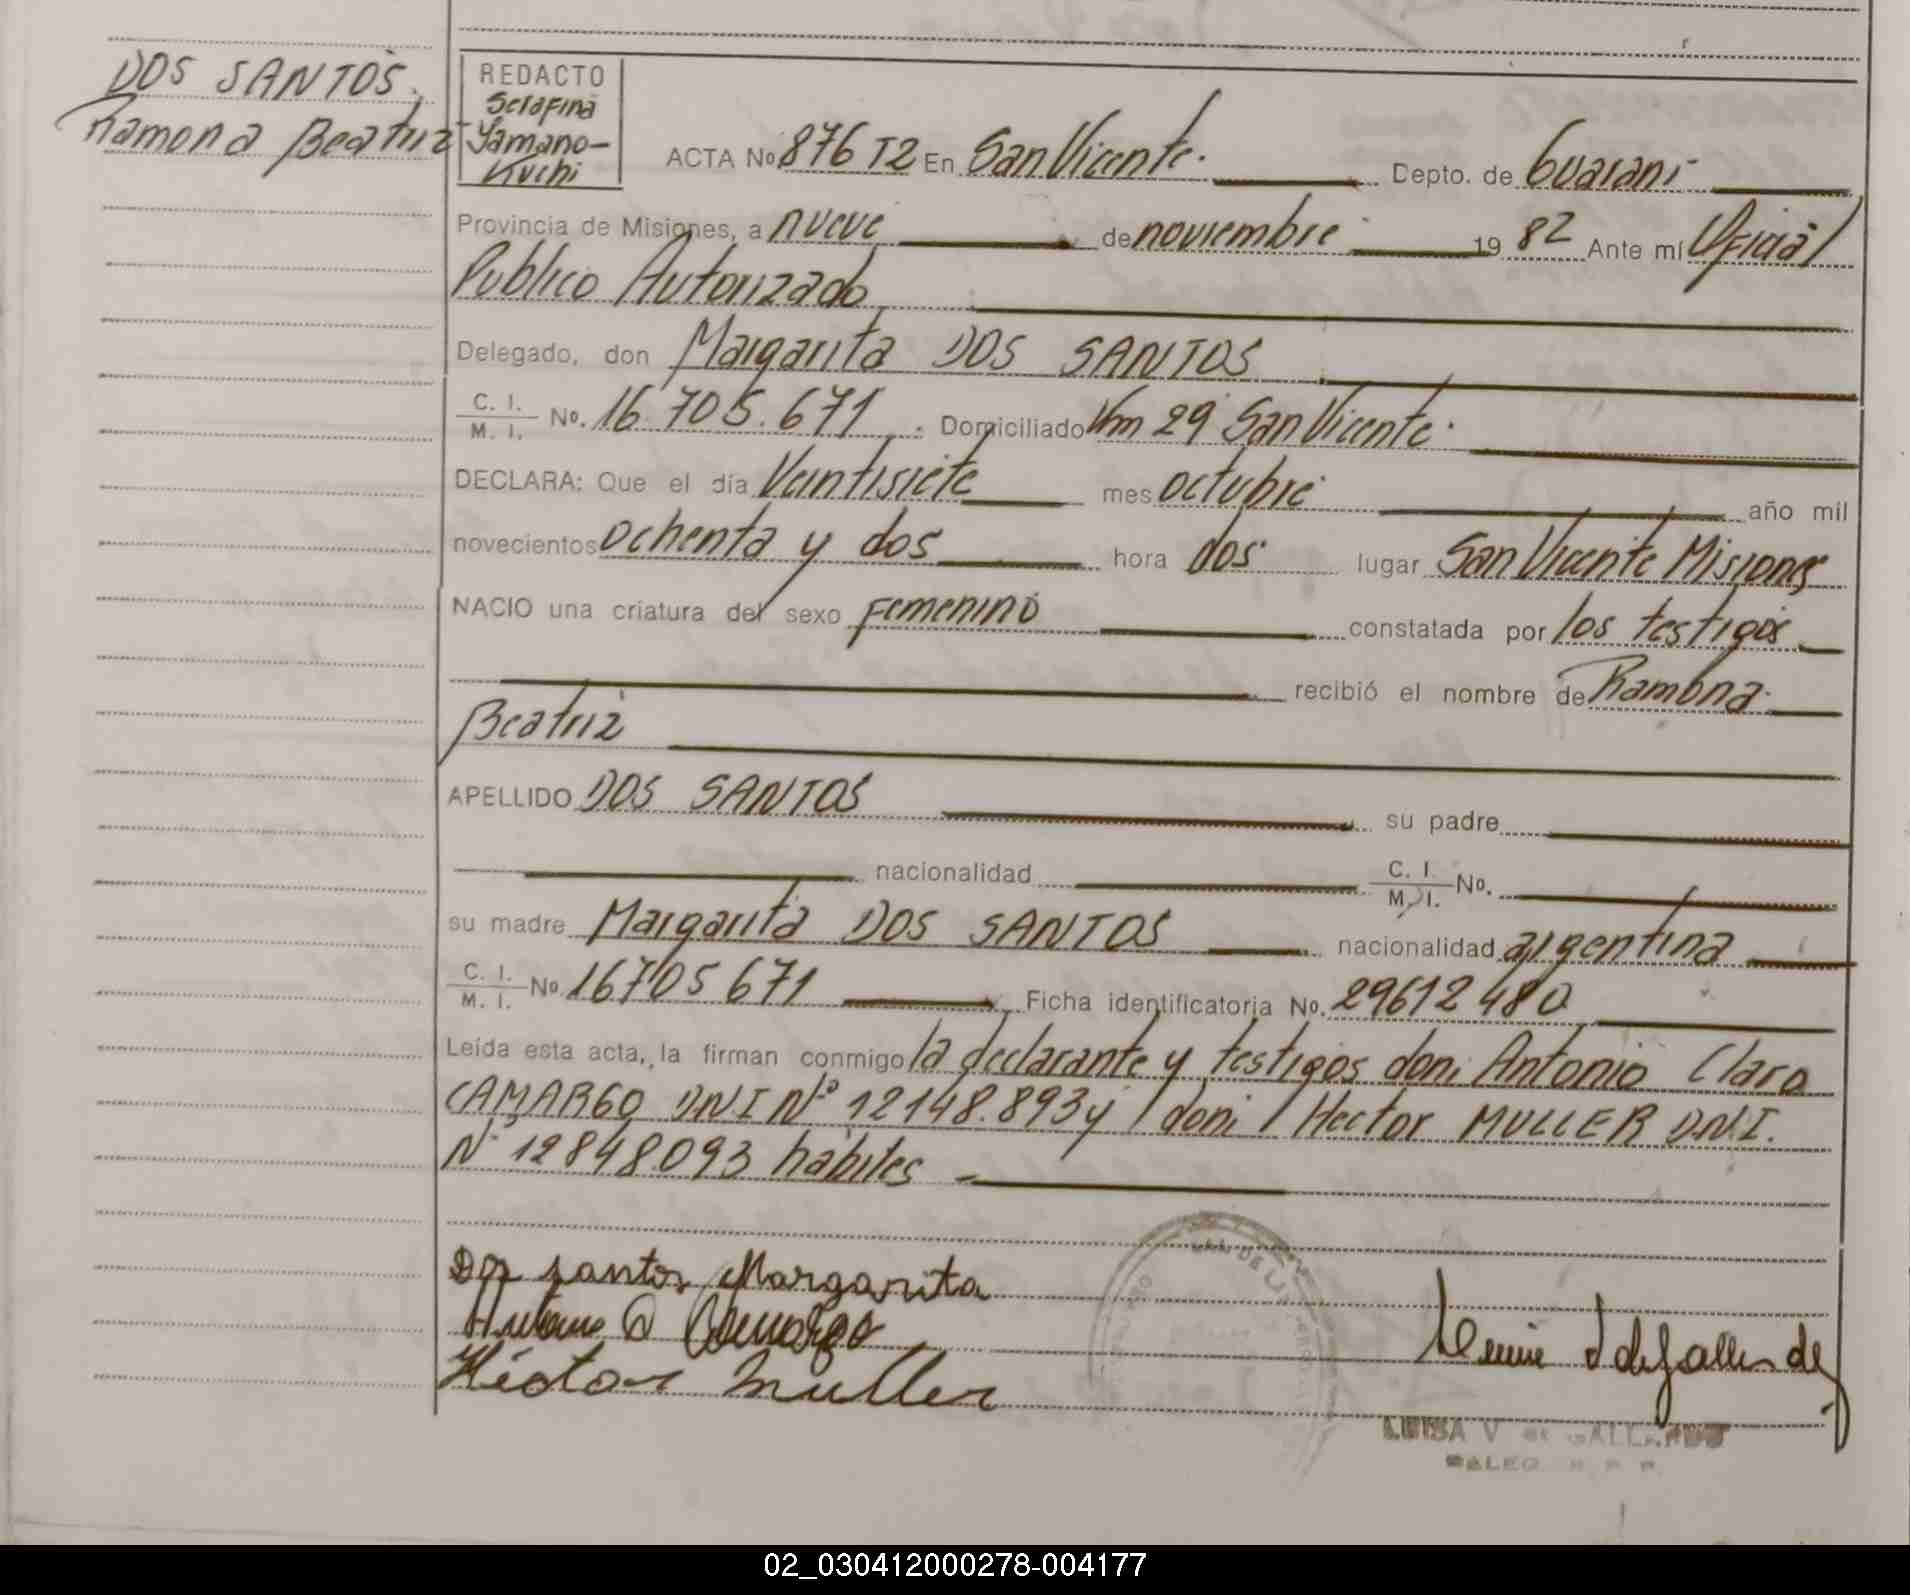 DOS SANTOS
Ramona Beatriz
REDACTO
Serafina
Yamano-
Kuchi
ACTA No 876 T2 En San Vicente. Depto. de Guaraní
Provincia de Misiones, a nueve de noviembre 19 82 Ante mí Oficial
Publico Autorizado
Delegado, don Margarita DOS SANTOS
C. I. / M. I. No. 16.705.671. Domiciliado Km 29 San Vicente.
DECLARA: Que el día Veintisiete mes octubre año mil
novecientos ochenta y dos hora dos lugar San Vicente Misiones
NACIO una criatura del sexo Femenino constatada por los testigos
recibió el nombre de Ramona
Beatriz
APELLIDO DOS SANTOS su padre
nacionalidad C. I. / M. I. No.
su madre Margarita DOS SANTOS nacionalidad argentina
C. I. / M. I. No 16705671 Ficha identificatoria No. 29612480
Leída esta acta, la firman conmigo la declarante y testigos don: Antonio Claro
CAMARGO DNI Nº 12148.893 y don: Hector MULLER D.N.I.
Nº 12848.093 hábiles
Dos santos Margarita
Camargo
Héctor Muller
LUISA V DE GALLARDO
02_030412000278-004177